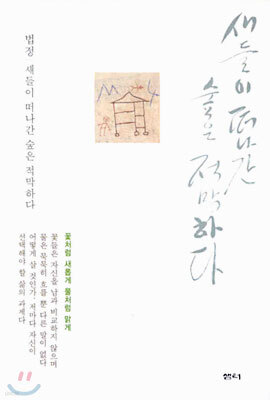 새들이 떠나간
숲은
적막하다
법정 새들이 떠나간 숲은 적막하다
꽃처럼 새롭게 물처럼 맑게
꽃들은 자신을 남과 비교하지 않으며
물은 묵묵히 흐를 뿐 다른 말이 없다
어떻게 살 것인가, 저마다 자신이
선택해야 할 삶의 과제다
샘터
yes24